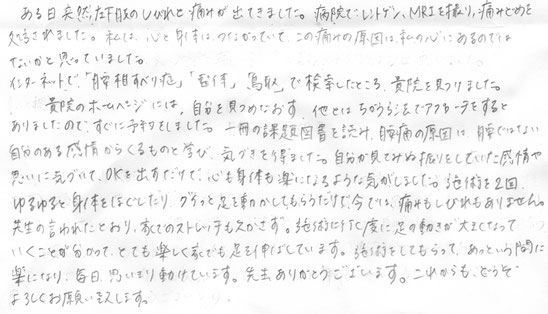 ある日突然、左下肢のしびれと痛みが出てきました。病院で、レントゲン、MRIを撮り、痛みどめを
処方されました。私は、心と身体は、つながっていて、この痛みの原因は私の心にあるのでは
ないかと思っていました。
インターネットで、「腰椎すべり症」「整体」「鳥取」で検索したところ、貴院を見つけました。
貴院のホームページには、自分を見つめなおす、他とはちがう方法でアプローチをすると
ありましたので、すぐに予約をしました。一冊の課題図書を読み、腰痛の原因は、腰ではない
自分のある感情からくるものと学び、気づきを得ました。自分が見てみぬ振りをしていた感情や
思いに気づいて、OKを出すだけで、心も身体も楽になるような気がしました。施術を2回、
ゆるゆると身体をほぐしたり、グイっと足を動かしてもらうだけで今では、痛みもしびれもありません。
先生の言われたとおり、家でのストレッチも欠かさず。施術に行く度に足の動きが大きくなって
いくことが分かって、とても楽しく家でも足を伸ばしています。施術をしてもらって、あっという間に
楽になり、毎日、思いきり動けています。先生ありがとうございます。これからも、どうぞ
よろしくお願い致します。